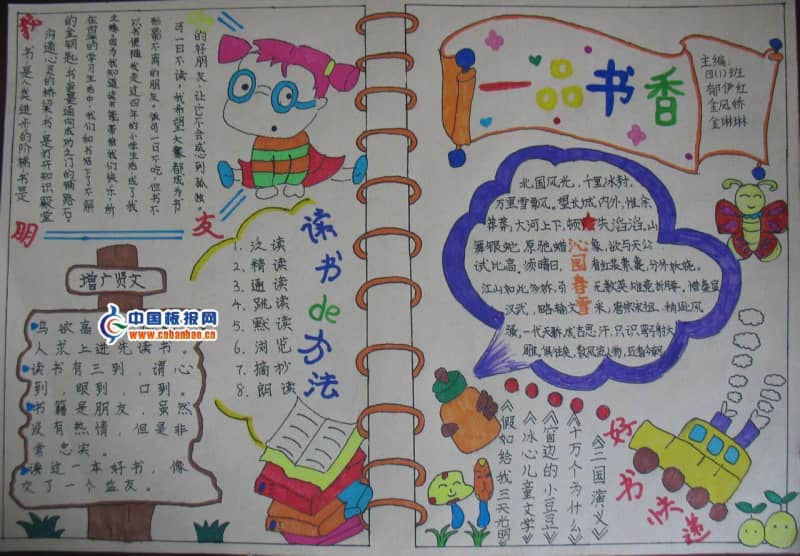 一品书香
主编:
四(1)班
郁伊红
金凤娇
金琳琳
我
朋
友
书是人类进步的阶梯书是
沟通心灵的桥梁书是打开知识殿堂
的金钥匙,书籍是通向成功之门的铺路石,
在四年的学习生活中,我们和书结下了不解
之缘,因为我知道书能带给我们快乐,所
以书便随我走过四年的小学生活成了我
形影不离的朋友,饭可一日不吃,但书不
可一日不读,我希望大家都成为书
的好朋友,让它不会感到孤独。
增广贤文
鸟欲高
人求上进先读书。
读书有三到,谓心
到,眼到,口到。
书籍是朋友,虽然
没有热情,但是非
常忠实。
读过一本好书,像
交了一个益友。
中国板报网
www.cnbanbao.cn
读书de方法
1. 泛读
2. 精读
3. 通读
4. 跳读
5. 默读
6. 浏览
7. 摘抄
8. 朗读
沁园春雪
北国风光,千里冰封,
万里雪飘风。望长城内外,惟余
莽莽;大河上下,顿失滔滔,山
舞银蛇,原驰蜡象,欲与天公
试比高,须晴日,看红装素裹,分外妖娆。
江山如此多娇,引无数英雄竞折腰,惜秦皇
汉武,略输文采,唐宗宋祖,稍逊风
骚,一代天骄,成吉思汗,只识弯弓射大
雕,俱往矣,数风流人物,还看今朝
好书快递
《三国演义》
《十万个为什么》
《窗边的小豆豆》
《冰心儿童文学》
《假如给我三天光明》